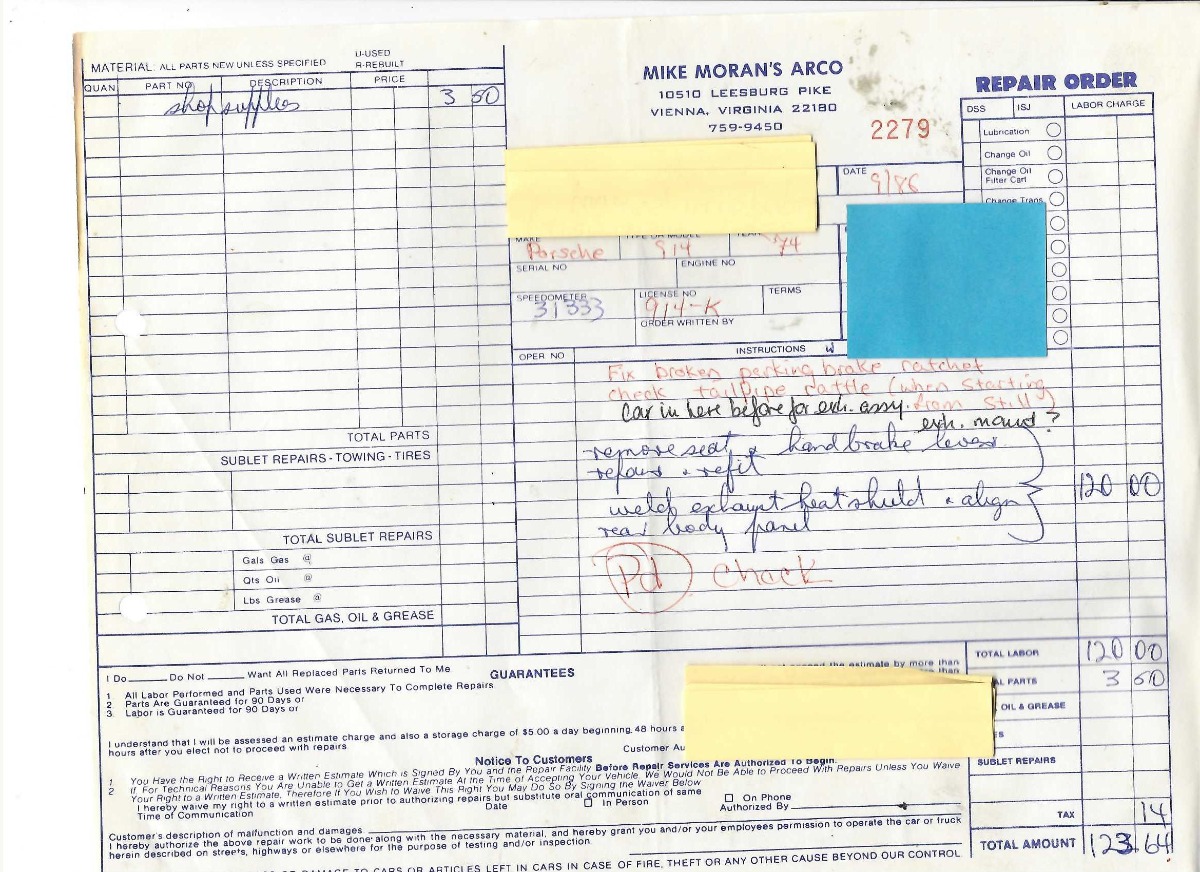 MATERIAL: ALL PARTS NEW UNLESS SPECIFIED
U-USED
R-REBUILT
QUAN. PART NO. DESCRIPTION PRICE
shop supplies 3 50
TOTAL PARTS
SUBLET REPAIRS - TOWING - TIRES
TOTAL SUBLET REPAIRS
Gals Gas @
Qts Oil @
Lbs Grease @
TOTAL GAS, OIL & GREASE
MIKE MORAN'S ARCO
10510 LEESBURG PIKE
VIENNA, VIRGINIA 22180
759-9450
2279
DATE 9/86
MAKE TYPE OR MODEL YEAR
Porsche 914 '74
SERIAL NO ENGINE NO
SPEEDOMETER LICENSE NO TERMS
31333 914-K
ORDER WRITTEN BY
OPER NO INSTRUCTIONS
Fix broken parking brake ratchet
check tailpipe rattle (when starting
from still)
Car in here before for exh. assy.
exh. mount?
remove seat & handbrake lever
repair & refit
weld exhaust heat shield & align 120 00
rear body panel
Pd Check
REPAIR ORDER
DSS ISJ LABOR CHARGE
Lubrication
Change Oil
Change Oil
Filter Cart
Change Trans
TOTAL LABOR 120 00
AL PARTS 3 50
OIL & GREASE
SUBLET REPAIRS
TAX 14
TOTAL AMOUNT 123 64
I Do Do Not Want All Replaced Parts Returned To Me
GUARANTEES
1 All Labor Performed and Parts Used Were Necessary To Complete Repairs
2 Parts Are Guaranteed for 90 Days or
3 Labor is Guaranteed for 90 Days or
the estimate by more than
I understand that I will be assessed an estimate charge and also a storage charge of $5.00 a day beginning 48 hours a
hours after you elect not to proceed with repairs
Customer Au
Notice To Customers
1 You Have the Right to Receive a Written Estimate Which is Signed By You and the Repair Facility Before Repair Services Are Authorized To Begin.
2 If For Technical Reasons You Are Unable to Get a Written Estimate At the Time of Accepting Your Vehicle, We Would Not Be Able to Proceed With Repairs Unless You Waive
Your Right to a Written Estimate, Therefore If You Wish to Waive This Right You May Do So By Signing the Waiver Below
I hereby waive my right to a written estimate prior to authorizing repairs but substitute oral communication of same
Time of Communication Date In Person On Phone
Authorized By
Customer's description of malfunction and damages
I hereby authorize the above repair work to be done along with the necessary material, and hereby grant you and/or your employees permission to operate the car or truck
herein described on streets, highways or elsewhere for the purpose of testing and/or inspection
DAMAGE TO CARS OR ARTICLES LEFT IN CARS IN CASE OF FIRE, THEFT OR ANY OTHER CAUSE BEYOND OUR CONTROL